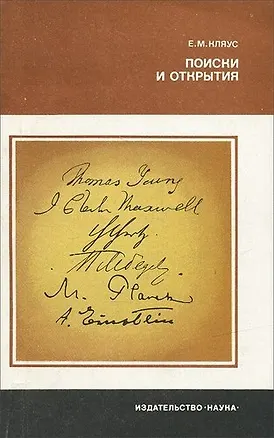 Е.М.КЛЯУС
ПОИСКИ
И ОТКРЫТИЯ
Thomas Young
J Clerk Maxwell
HHertz.
ПЛебедевъ
M. Planck
A. Einstein
ИЗДАТЕЛЬСТВО «НАУКА»